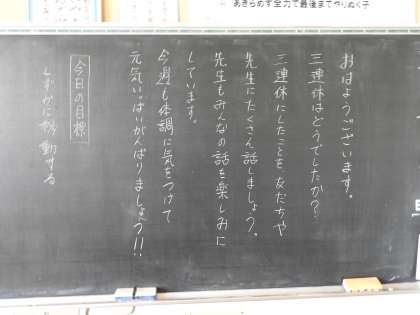 あきらめず全力で最後までやりぬく子
おはようございます。
三連休はどうでしたか？
三連休にしたことを友だちや
先生にたくさん話しましょう。
先生もみんなの話を楽しみに
しています。
今週も体調に気をつけて
元気いっぱいがんばりましょう!!
今日の目標
しずかに移動する